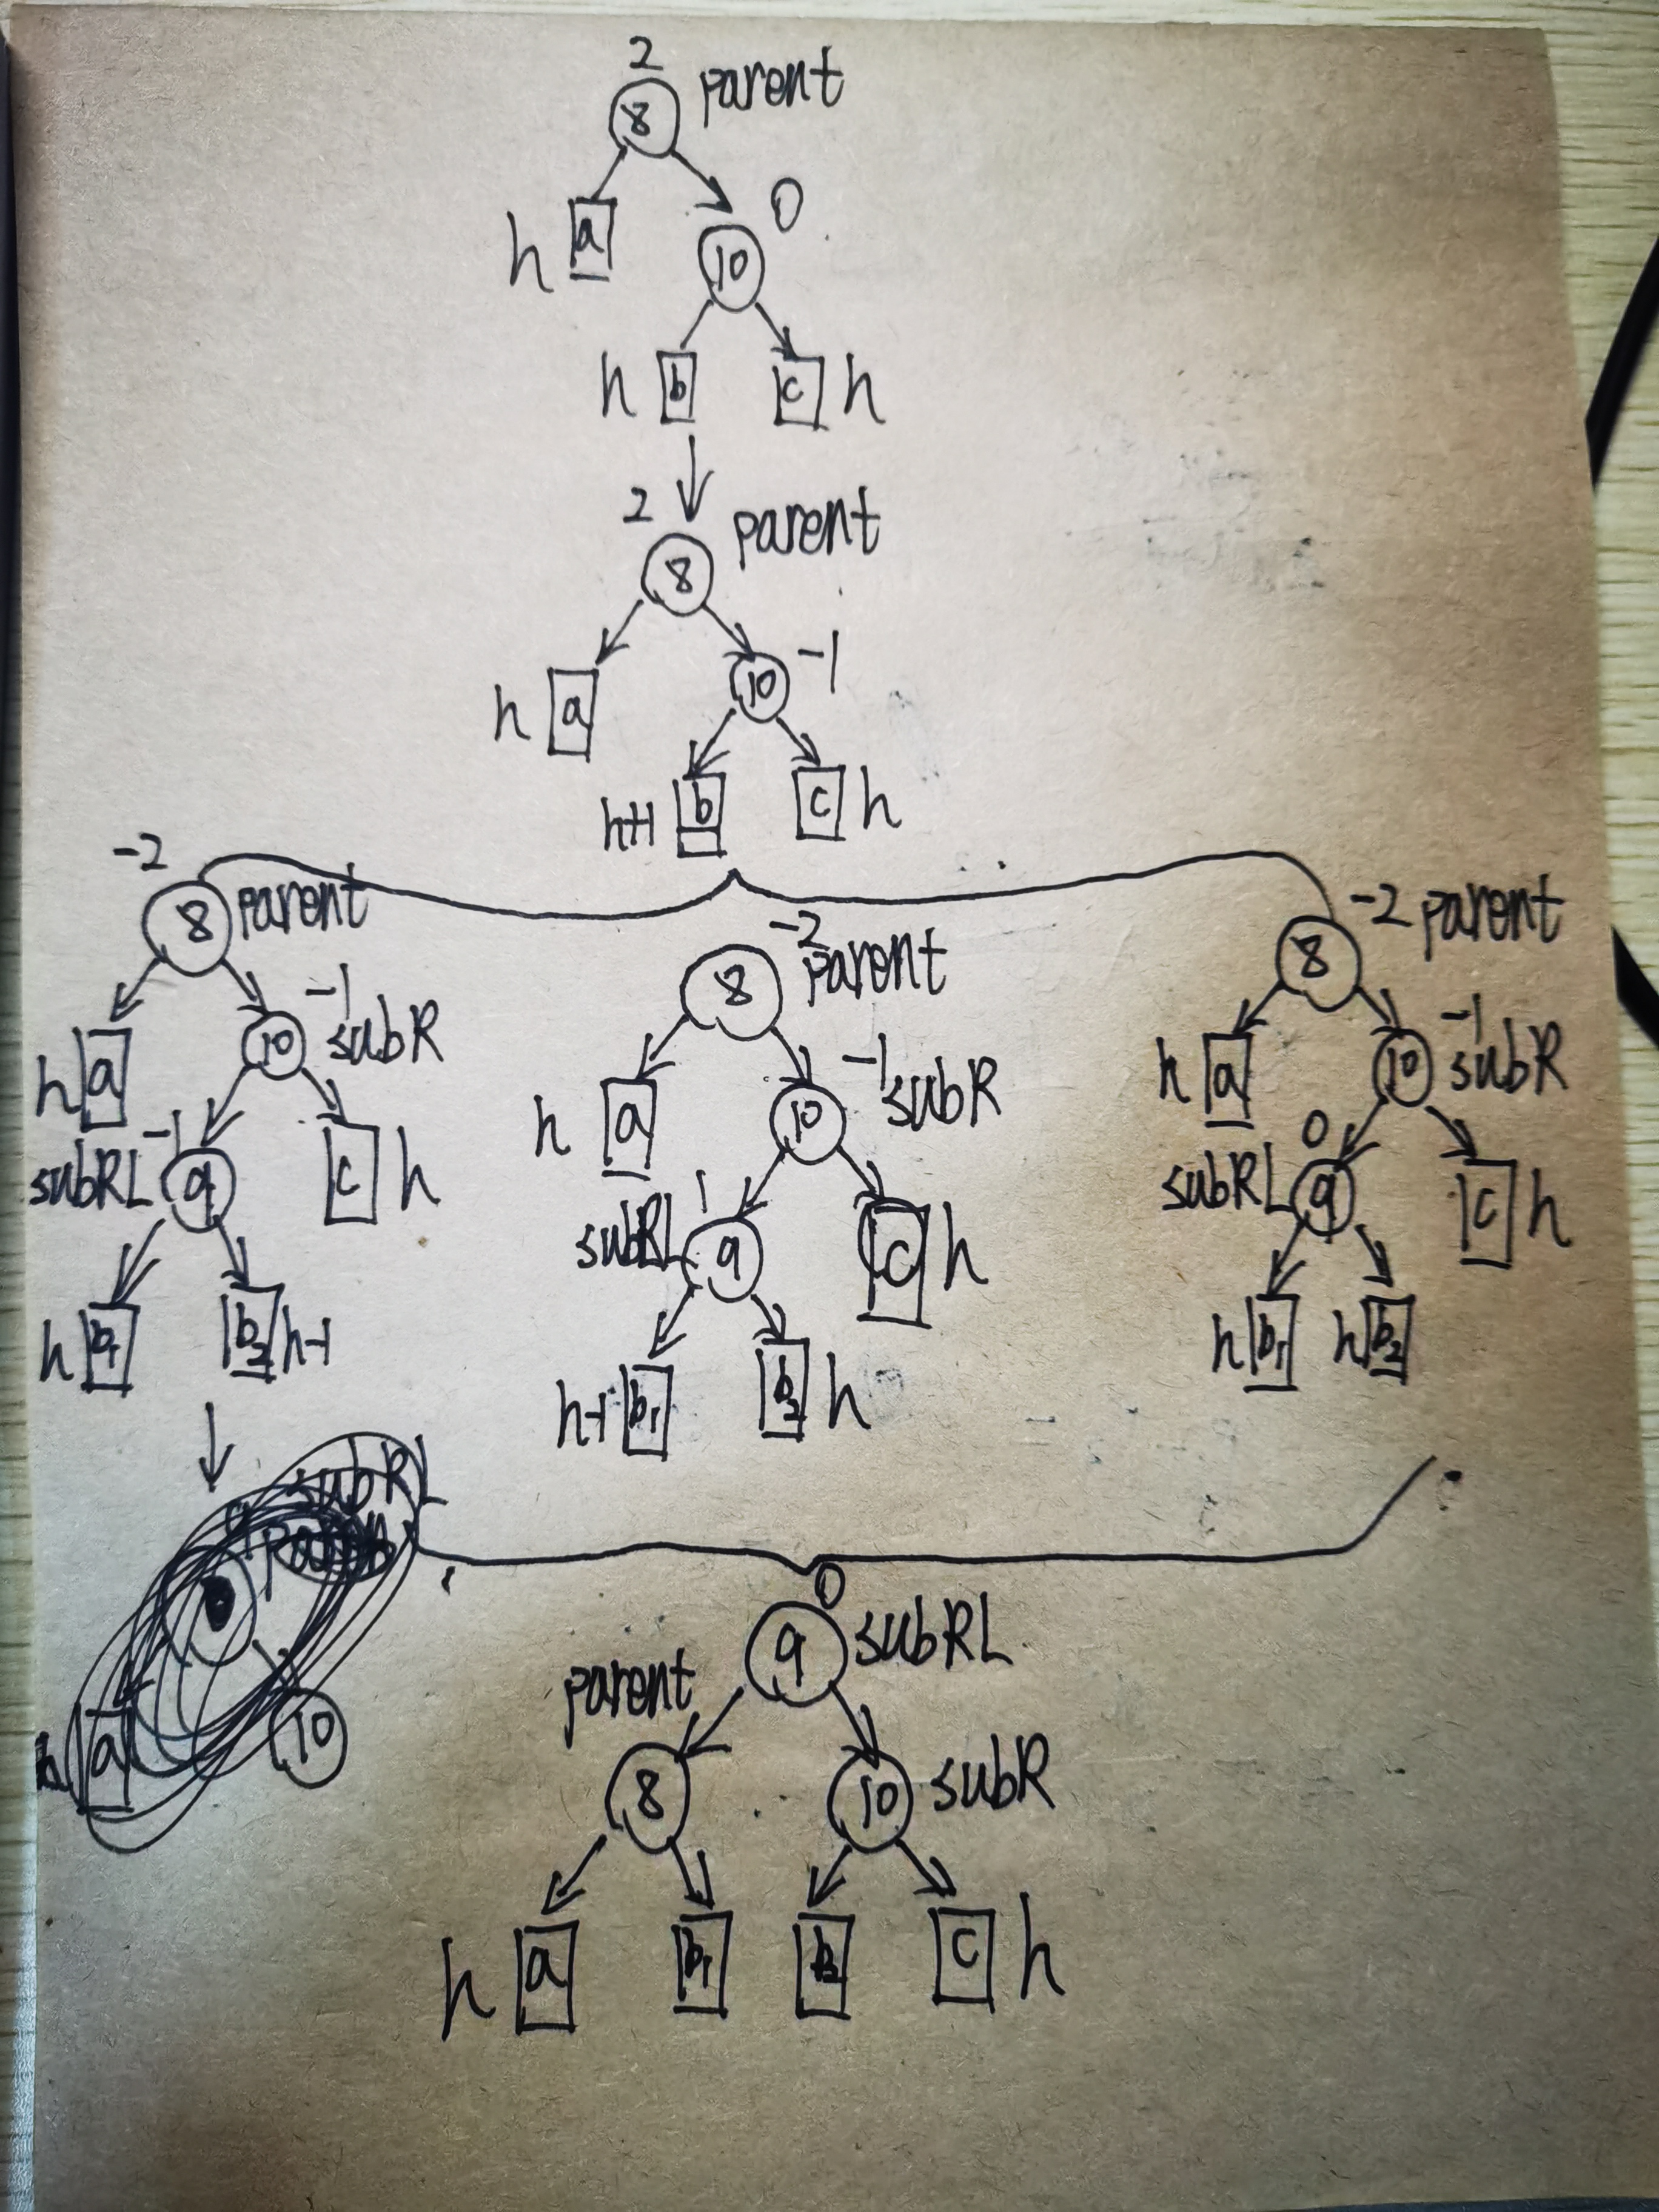 2
8 parent
0
h a 10
h b c h
2
8 parent
-1
h a 10
h+1 b c h
-2
8 parent
-1
h a 10 subR
-1
subRL 9 c h
h b1 b2 h-1
-2
8 parent
-1
h a 10 subR
1
subRL 9 c h
h-1 b1 b2 h
-2 parent
8
-1
h a 10 subR
0
subRL 9 c h
h b1 h b2
subRL
a 10
0
9 subRL
parent
8 10 subR
h a b1 b2 c h